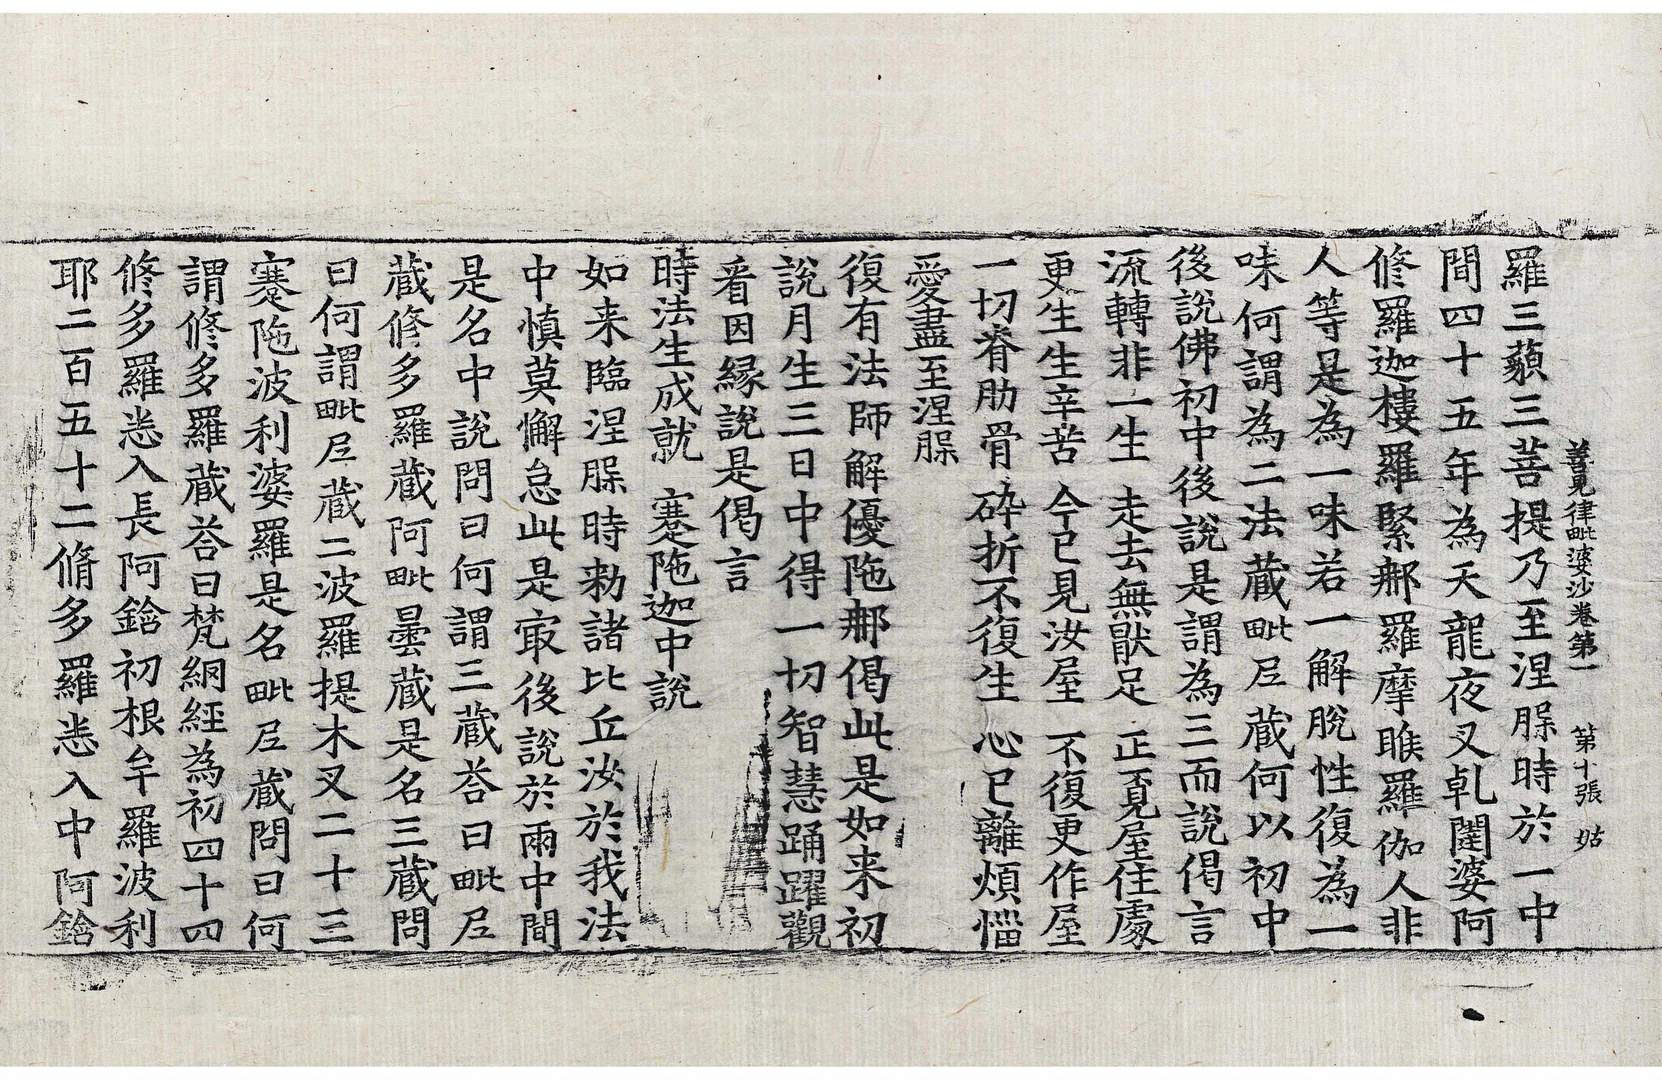 善見律毗婆沙卷第一　第十張　姑
羅三藐三菩提乃至涅槃時於一中
間四十五年為天龍夜叉乹闥婆阿
修羅迦樓羅緊那羅摩睺羅伽人非
人等是為一味若一解脫性復為一
味何謂為二法藏毗尼藏何以初中
後說佛初中後說是謂為三而說偈言
流轉非一生　走去無猒足　正覓屋住處
更生生辛苦　今已見汝屋　不復更作屋
一切脊肋骨　碎折不復生　心已離煩惱
愛盡至涅槃
復有法師解優陁那偈此是如来初
說月生三日中得一切智慧踊躍觀
看因縁說是偈言
時法生成就　蹇陁迦中說
如来臨涅槃時勑諸比丘汝於我法
中慎莫懈怠此是㝡後說於兩中間
是名中說問曰何謂三藏荅曰毗尼
藏修多羅藏阿毗曇藏是名三藏問
曰何謂毗尼藏二波羅提木叉二十三
蹇陁波利婆羅是名毗尼藏問曰何
謂修多羅藏荅曰梵網經為初四十四
修多羅悉入長阿鋡初根牟羅波利
耶二百五十二脩多羅悉入中阿鋡